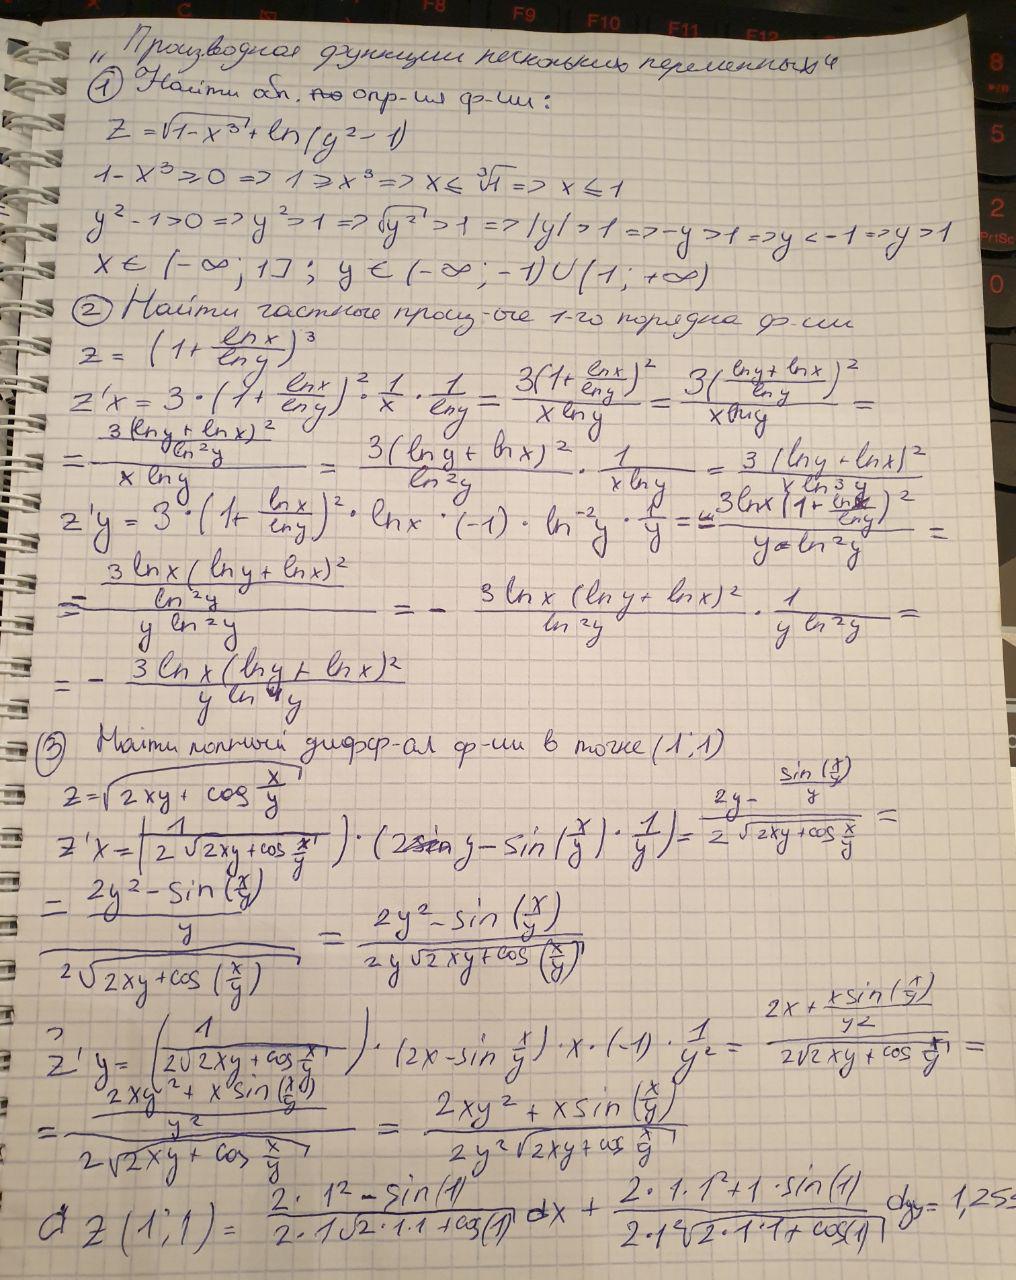 F8 F9 F10 F11 F12
8
5
2
PrtSc
0
„Производная функции нескольких переменных“
① Найти обл. опр-ия ф-ии:
z = √(1-x³) + ln(y²-1)
1-x³ ⩾ 0 => 1 ⩾ x³ => x ⩽ ³√1 => x ⩽ 1
y²-1>0 => y²>1 => √(y²) > 1 => |y| > 1 => -y > 1 => y < -1 => y > 1
x ∈ (-∞; 1]; y ∈ (-∞; -1) ∪ (1; +∞)
② Найти частные произ-ые 1-го порядка ф-ии
z = (1 + lnx/lny)³
z'x = 3·(1 + lnx/lny)²·1/x·1/lny = 3(1 + lnx/lny)²/(x lny) = 3((lny + lnx)/lny)²/(x lny) =
= (3(lny + lnx)²/ln²y)/(x lny) = 3(lny + lnx)²/ln²y · 1/(x lny) = 3(lny + lnx)²/(x ln³y)
z'y = 3·(1 + lnx/lny)²·lnx·(-1)·ln⁻²y·1/y = -3lnx(1 + lnx/lny)²/(y·ln²y) =
= (3 lnx(lny + lnx)²/ln²y)/(y ln²y) = - 3 lnx (lny + lnx)²/ln²y · 1/(y ln²y) =
= - 3 ln x (lny + lnx)²/(y ln⁴y)
③ Найти полный дифф-ал ф-ии в точке (1;1)
z = √(2xy + cos x/y)
z'x = (1/(2√(2xy + cos x/y)))·(2y - sin(x/y)·1/y) = (2y - sin(x/y)/y)/(2√(2xy + cos x/y)) =
= ((2y² - sin(x/y))/y)/(2√(2xy + cos(x/y))) = (2y² - sin(x/y))/(2y√(2xy + cos(x/y)))
z'y = (1/(2√(2xy + cos x/y)))·(2x - sin x/y)·x·(-1)·1/y² = (2x + x sin(x/y)/y²)/(2√(2xy + cos x/y)) =
= ((2xy² + x sin(x/y))/y²)/(2√(2xy + cos x/y)) = (2xy² + x sin(x/y))/(2y²√(2xy + cos x/y))
d z(1;1) = (2·1² - sin(1))/(2·1√(2·1·1 + cos(1))) dx + (2·1·1² + 1·sin(1))/(2·1²√(2·1·1 + cos(1))) dy = 1,255